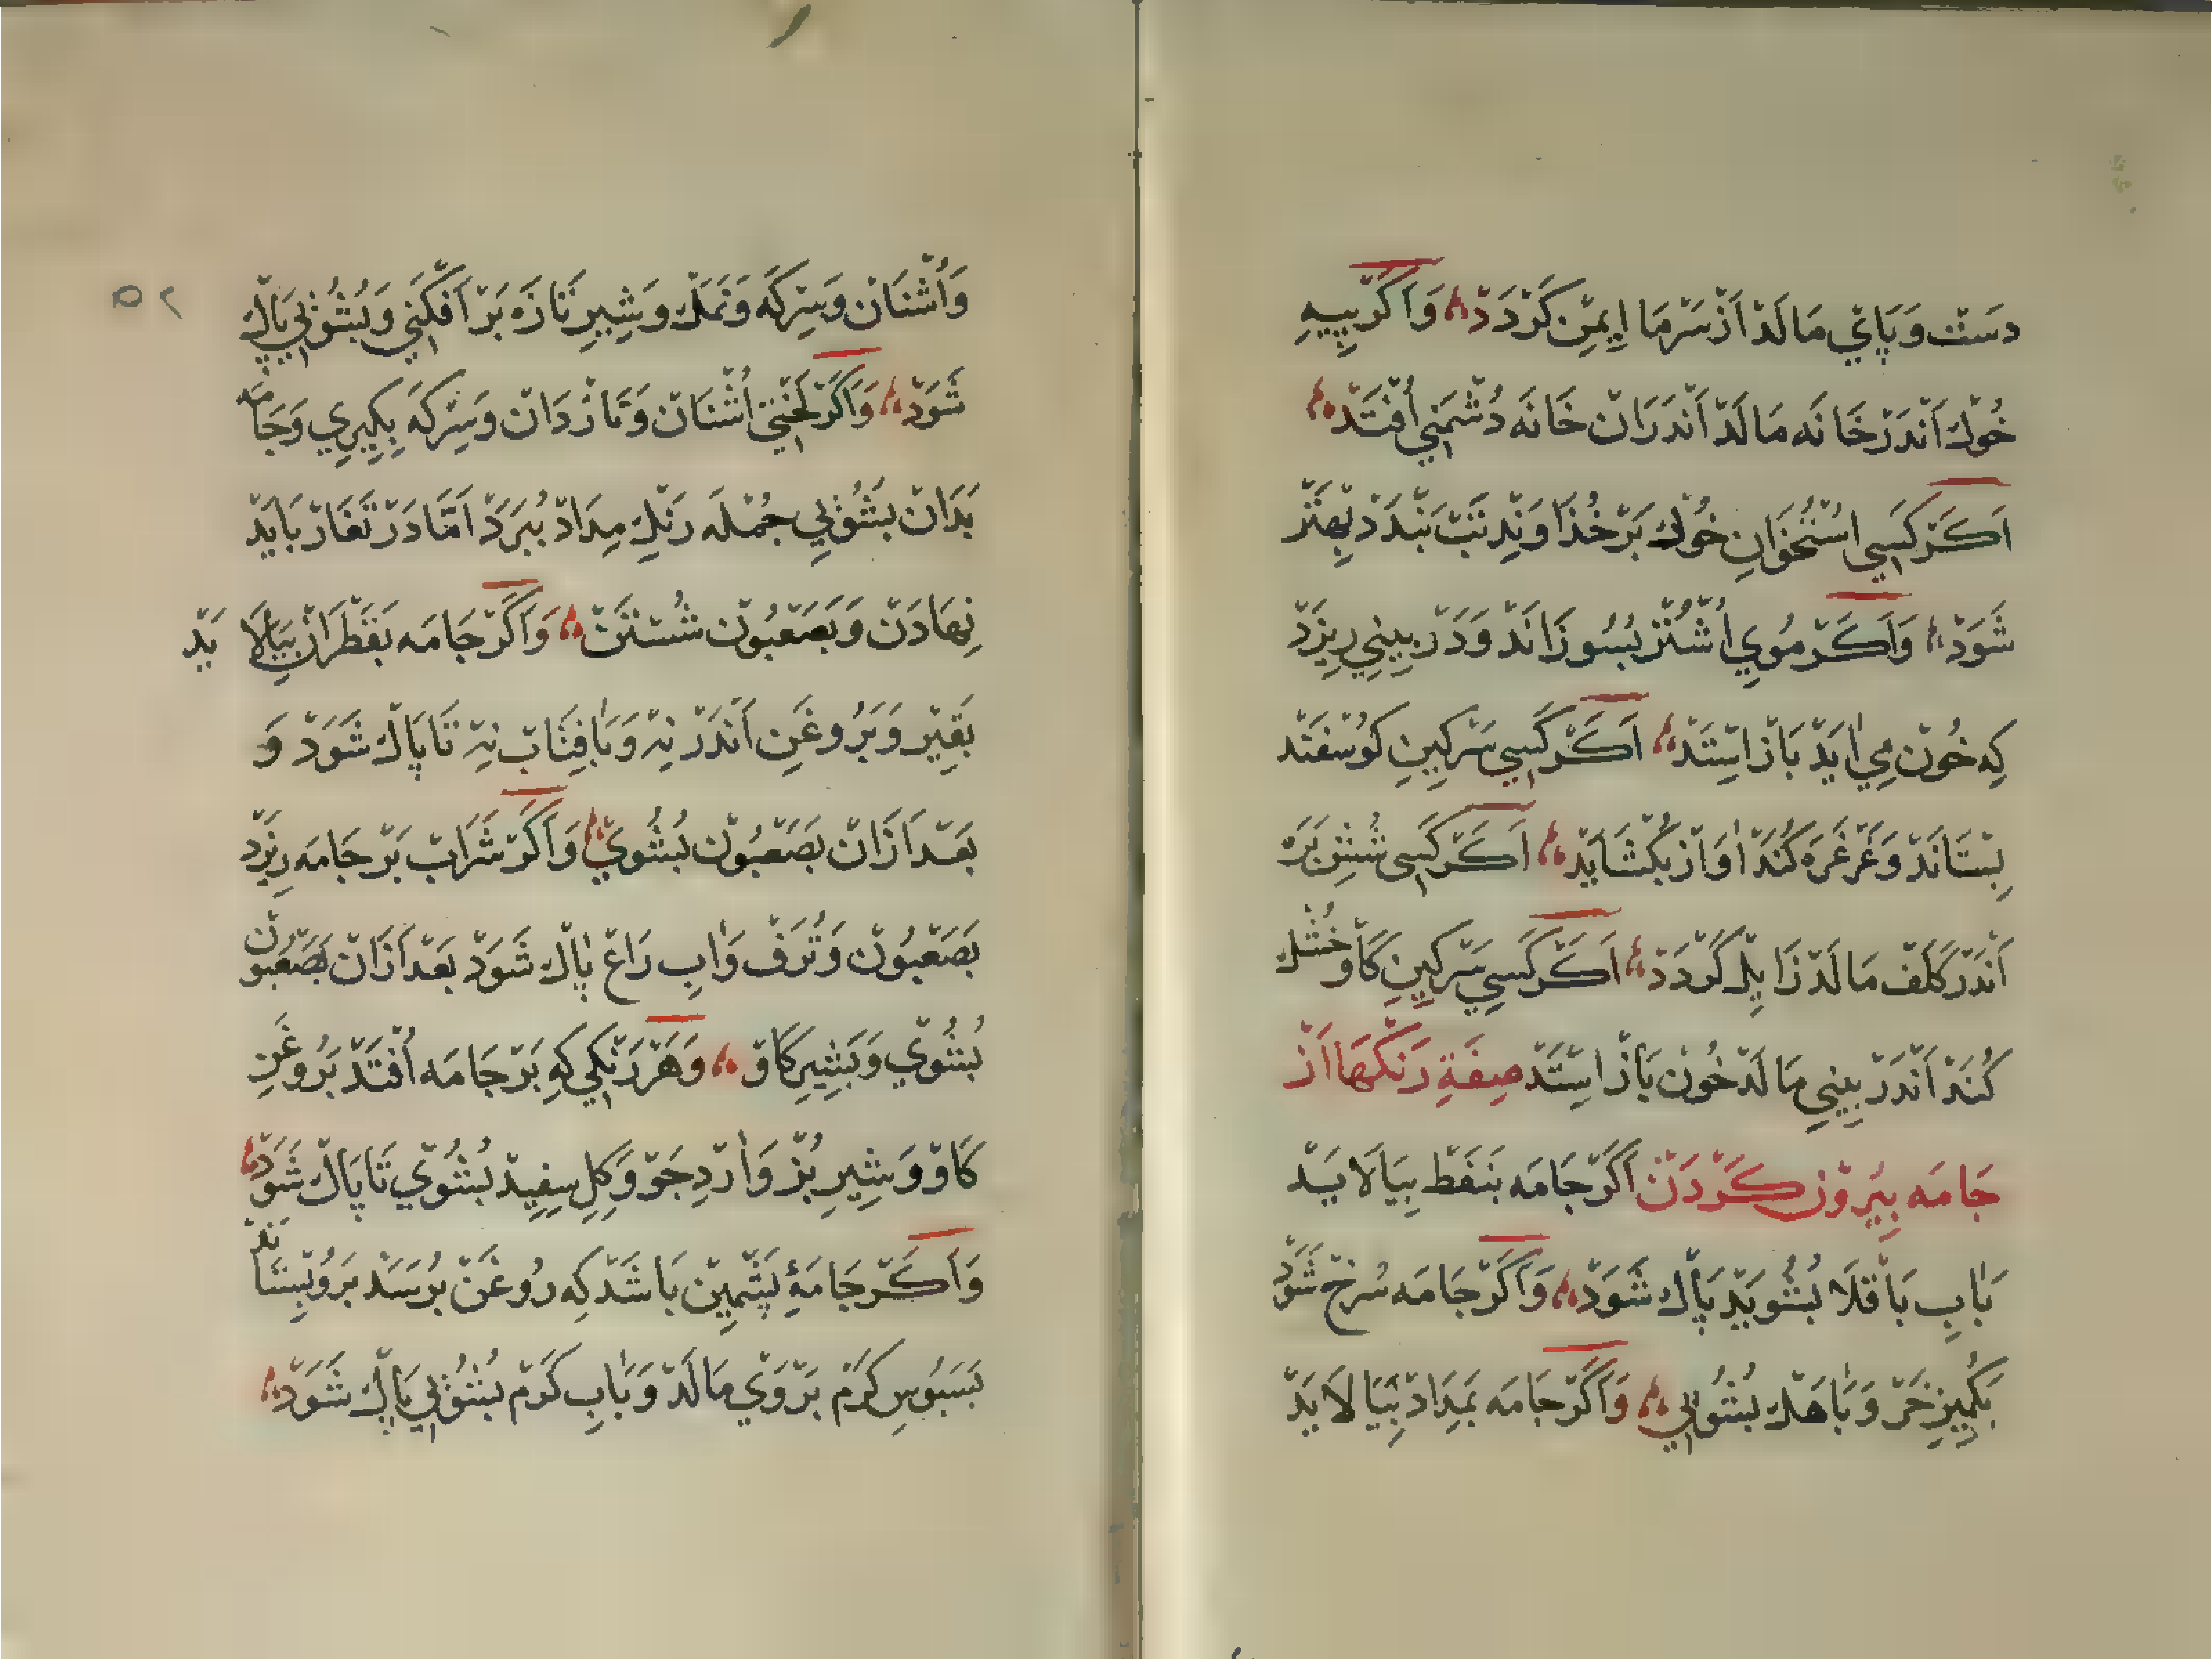 دَسَتْ وَ پَايْ مَالَدْ اَزْ سَرْمَا اِيمِنْ گَرْدَدْ وَاَگَرْ پِيهِ
خُوْكْ اَنْدَرْ خَانَه مَالَدْ اَنْدَرَانْ خَانَه دُشْمَنِي اُفْتَدْ
اَگَرْ كَسِي اسْتُخَوَانِ خُوْكْ بَرْ خُذَاوَنِدِ تَبْ بَنْدَدْ بِهْتَرْ
شَوَدْ وَاَگَرْ مُوِي اُشْتُرْ بُسُوزَانَدْ وَدَرْ بِينِي رِيزَدْ
كِه خُونْ مِي اٰيَدْ بَازْ اِسْتَدْ اَگَرْ كَسِي سَرْگِينِ گُوسْفَنْد
بِسْتَانَدْ وَغَرْغَرَه كُنَدْ اٰوَازْ بُگْشَايَدْ اَگَرْ كَسِي شُشِ بَرَه
اَنْدَرْ كَلَفْ مَالَدْ زَايِلْ گَرْدَدْ اَگَرْ كَسِي سَرْگِينِ گَاوْ خُشْكْ
كُنَدْ اَنْدَرْ بِينِي مَالَدْ خُونْ بَازْ اِسْتَدْ صِفَةِ رَنْگْهَا اَزْ
جَامَه بِيْرُوْنْ كَرْدَنْ اَگَرْ جَامَه بَنَفْطْ بِيَالَايَدْ
بَاٰبِ بَاقْلَا بُشُويَدْ پَاكْ شَوَدْ وَاَگَرْ جَامَه سُرْخْ شَوَدْ
بَكُمِيزِ خَرْ وَبَاٰهَكْ بُشُوْيِي وَاَگَرْ جَامَه بَمِدَادْ بِيَالَايَدْ
وَاُشْنَانْ وَسِرْكَه وَنَمَكْ وَشِيرِ تَازَه بَرْ اَفْگَنِي وَبُشُوْيِي پَاكْ
شَوَدْ وَاَگَرْ لَخْتِي اُشْنَانْ وَنَارْدَانْ وَسِرْكَه بِگِيرِي وَجَامَه
بَدَانْ بُشُوْيِي جُمْلَه رَنْگِ مِدَادْ بُبَرَدْ اَمَّا دَرْ تَغَارْ بَايَدْ
نِهَادَنْ وَبَصَعْبُونْ شُسْتَنْ وَاَگَرْ جَامَه بَقَطْرَانْ بِيَالَايَدْ
بَقِيْر وَبَرُوغَنِ اَنْدَرْ نِهْ وَبَاٰفِتَابْ نِهْ تَا پَاكْ شَوَدْ وَ
بَعْدَ اَزَانْ بَصَعْبُونْ بُشُوِيْ وَاَگَرْ شَرَابْ بَرْ جَامَه رِيزَدْ
بَصَعْبُونْ وَتُرَفْ وَاٰبِ رَاغْ پَاكْ شَوَدْ بَعْدَ اَزَانْ بَصَعْبُونْ
بُشُويْ وَبَشِيرِ گَاوْ وَهَرْ رَنْگِي كِه بَرْ جَامَه اُفْتَدْ بَرُوغَنِ
گَاوْ وَشِيرِ بُزْ وَاٰرْدِ جَوْ وَگِلِ سِفِيدْ بُشُويْ تَا پَاكْ شَوَدْ
وَاَگَرْ جَامَهِٔ پَشْمِينْ بَاشَدْ كِه رُوغَنْ بُرْسَدْ بَرُو بِسْتَانَدْ
بَسَبُوسِ گَرَمْ بَرْ وَيْ مَالَدْ وَبَاٰبِ گَرَمْ بُشُوْيِي پَاكْ شَوَدْ
۵۲